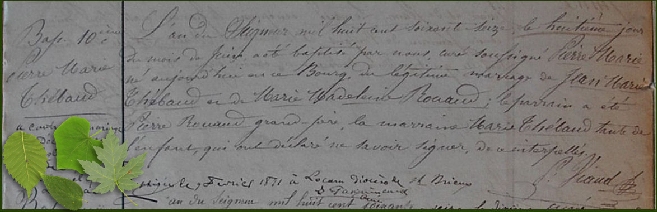 Bap. 10ième
Pierre Marie
Thébaud
L'an du Seigneur mil huit cent soixante seize, le huitième jour
du mois de juin a été baptisé par nous curé soussigné Pierre Marie
né aujourd'hui en ce Bourg, du légitime mariage de Jean Marie
Thébaud et de Marie Madeleine Rouaud; le parrain a été
Pierre Rouaud grand-père, la marraine Marie Thébaud tante de
l'enfant, qui ont déclaré ne savoir signer, de ce interpellés.
Viaud
a contracté mariage
février à diocèse St Brieuc
L'an du Seigneur mil huit cent soixante